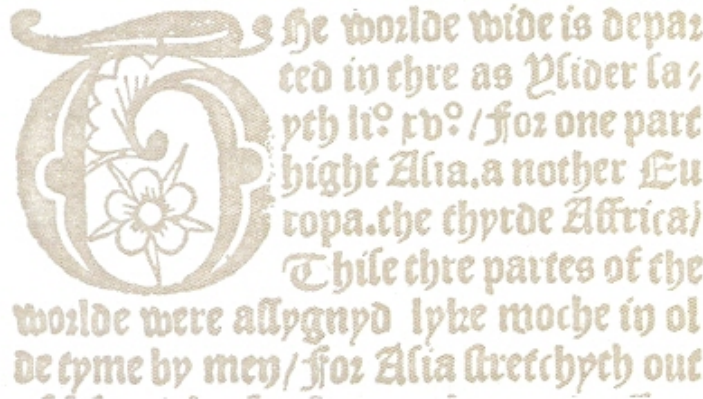 The worlde wide is depar
ted in thre as Ysider la/
yth li⁰ xv⁰ / For one part
hight Asia. a nother Eu
ropa. the thyrde Affrica/
Thise thre partes of the
worlde were assygnyd lyke moche in ol
de tyme by men/ For Asia stretchyth out